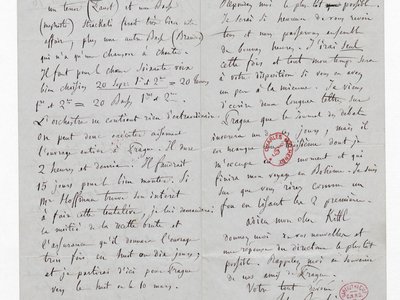 un tenor (Faust) et une Bass
(mephisto) feront très bien cette
affaire, plus une autre Bass (Brander)
qui n'a qu'une chanson à chanter.
Il faut pour le chœur soixante voix
bien choisies 20 Sopr 1er et 2me = 20 tenors,
1er et 2me = 20 Bass, 1er et 2me.
L'orchestre ne contient rien d'extraordinaire.
On peut donc exécuter aisement
l'ouvrage entier à Prague. Il dure
2 heures et demie. Il faudrait
15 jours pour le bien monter. Si
Mr Hoffmann trouve son intérêt
à faire cette tentative, je lui demanderai
la moitié de la recette brute et
l'assurance qu'il donnera l'ouvrage
trois fois en huit ou dix jours;
et je partirai d'ici pour Prague
vers le huit ou le 10 mars.
Répondez moi le plus tôt possible.
Je serai si heureux de vous revoir
et nous passerons ensemble
de bonnes heures. J'irai seul
cette fois et tout mon temps sera
à votre disposition si vous en avez
un peu à la mienne. Je viens
d'écrire une longue lettre sur
Prague que le Journal des débats
inserera un de ces jours; mais il
en manque une troisième dont je
m'occupe en ce moment et qui
finira mon voyage en Bohême. Je suis
sûr que vous rirez comme un
fou en lisant les 2 premières.
Adieu mon cher Kittl
donnez moi de vos nouvelles et
une réponse du directeur le plus tôt
possible. Rappelez moi au souvenir
de nos amis de Prague.
Votre tout dévoué